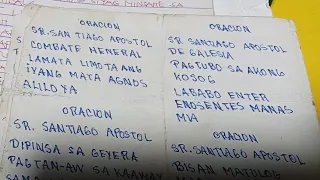 ORACION
SR. SAN TIAGO APOSTOL
COMBATE HENERAL
LAMATA LIMOTA ANG
IYANG MATA AGNOS
ALILOYA
ORACION
SR. SANTIAGO APOSTOL
DIPINSA SA GEYERA
PAGTAN-AW SA KAAWAY
ORACION
SR. SANTIAGO APOSTOL
DE GALESIA
PAGTUBO SA AKONG
KOSOG
LABABO ENTER
ENOSENTES MANAS
MIA
ORACION
SR. SANTIAGO APOSTOL
BISAN MATULOG